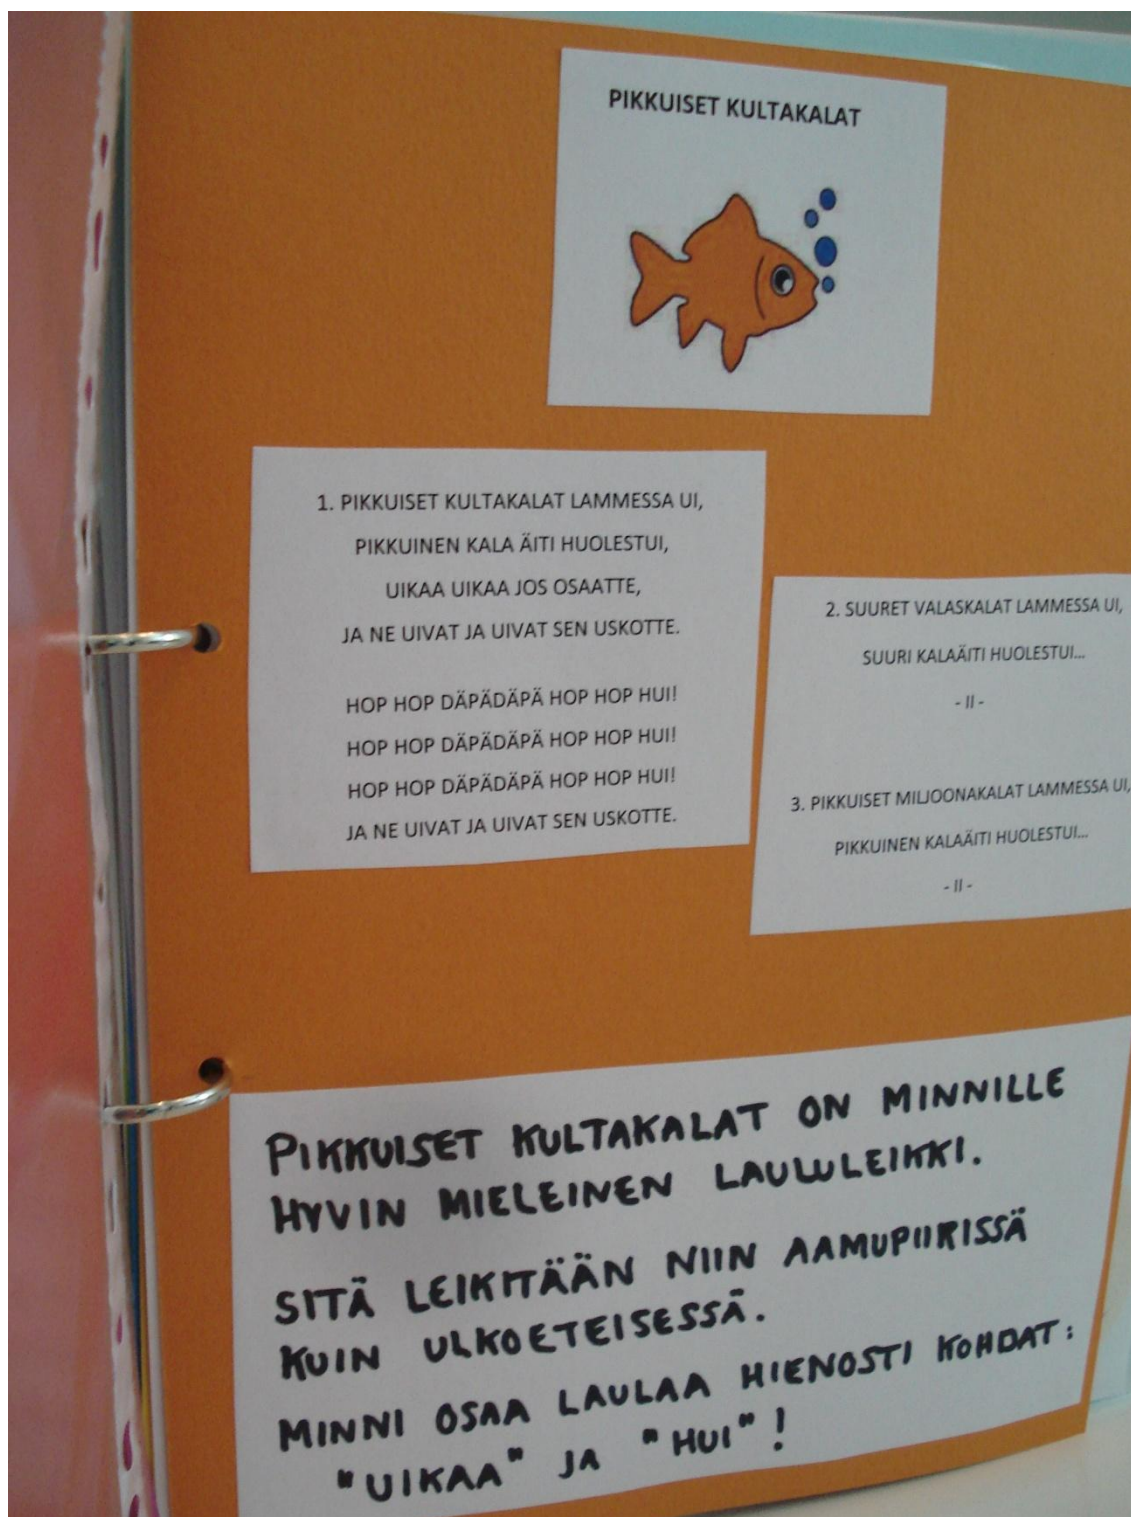 PIKKUISET KULTAKALAT
1. PIKKUISET KULTAKALAT LAMMESSA UI,
PIKKUINEN KALA ÄITI HUOLESTUI,
UIKAA UIKAA JOS OSAATTE,
JA NE UIVAT JA UIVAT SEN USKOTTE.
HOP HOP DÄPÄDÄPÄ HOP HOP HUI!
HOP HOP DÄPÄDÄPÄ HOP HOP HUI!
HOP HOP DÄPÄDÄPÄ HOP HOP HUI!
JA NE UIVAT JA UIVAT SEN USKOTTE.
2. SUURET VALASKALAT LAMMESSA UI,
SUURI KALAÄITI HUOLESTUI...
- II -
3. PIKKUISET MILJOONAKALAT LAMMESSA UI,
PIKKUINEN KALAÄITI HUOLESTUI...
- II -
PIKKUISET KULTAKALAT ON MINNILLE
HYVIN MIELEINEN LAULULEIKKI.
SITÄ LEIKITÄÄN NIIN AAMUPIIRISSÄ
KUIN ULKOETEISESSÄ.
MINNI OSAA LAULAA HIENOSTI KOHDAT:
"UIKAA" JA "HUI"!